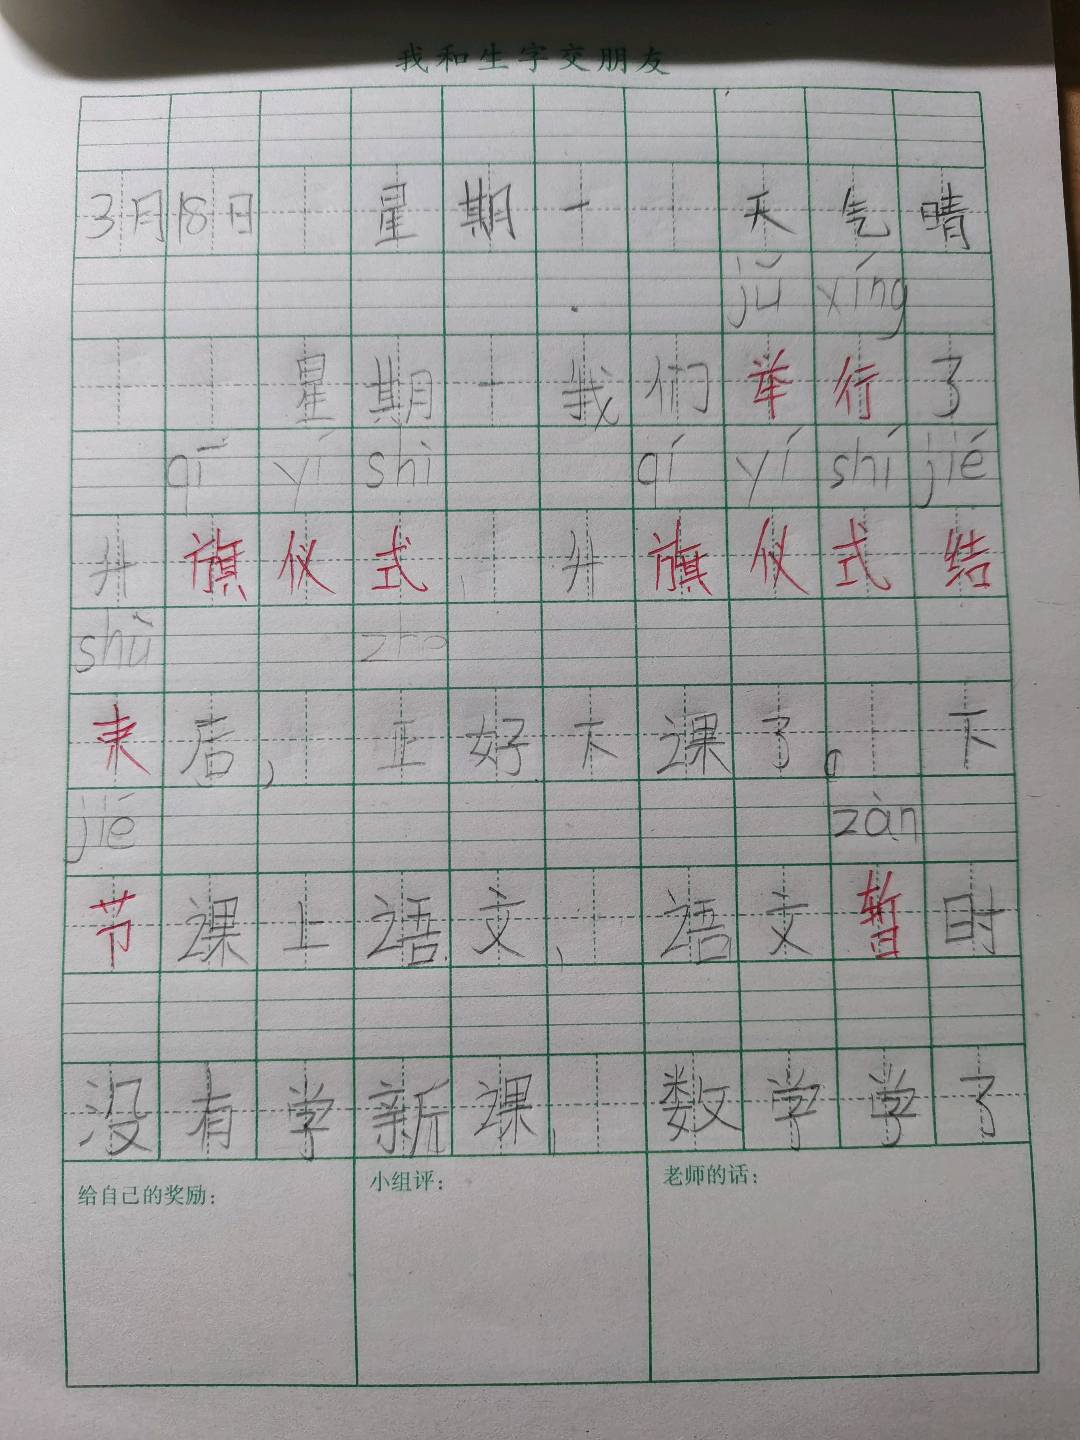 我和生字交朋友
3月18日 星期一 天气晴
jǔ xíng
星期一我们举行了
qí yí shì qí yí shí jié
升旗仪式,升旗仪式结
shù zho
束后,正好下课了。下
jié zàn
节课上语文,语文暂时
没有学新课,数学学了
给自己的奖励: 小组评: 老师的话: